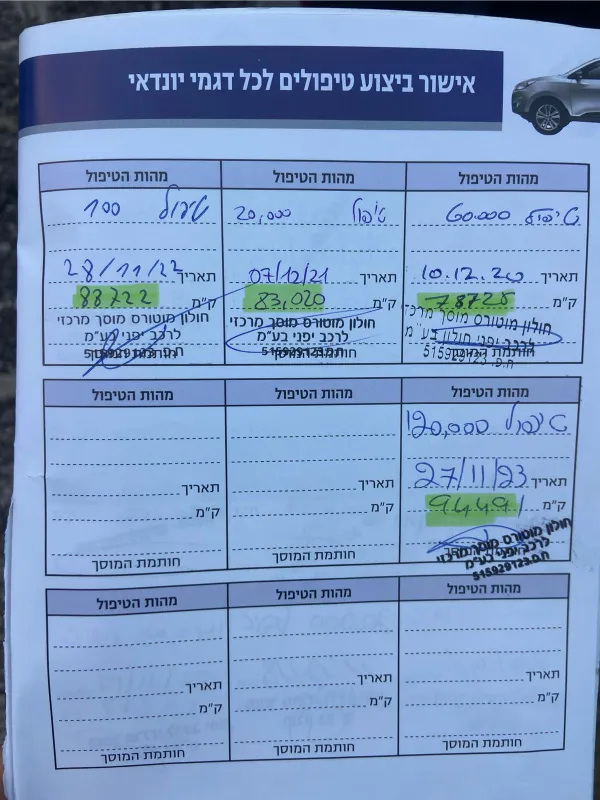 אישור ביצוע טיפולים לכל דגמי יונדאי
מהות הטיפול
טיפול 60.000
תאריך 10.12.20
ק"מ 78725
חולון מוטורס מוסך מרכזי
לרכב יפני חולון בע"מ
ח.פ. 515929123
חותמת המוסך
מהות הטיפול
טיפול 20,000
תאריך 07/12/21
ק"מ 83,020
חולון מוטורס מוסך מרכזי
לרכב יפני בע"מ
ח.פ. 515929123
חותמת המוסך
מהות הטיפול
טיפול 100
תאריך 28/11/22
ק"מ 88722
חולון מוטורס מוסך מרכזי
לרכב יפני בע"מ
ח.פ. 515929123
חותמת המוסך
מהות הטיפול
טיפול 120,000
תאריך 27/11/23
ק"מ 94491
חולון מוטורס מוסך מרכזי
לרכב יפני בע"מ
ח.פ. 515929123
מהות הטיפול
תאריך
ק"מ
חותמת המוסך
מהות הטיפול
תאריך
ק"מ
חותמת המוסך
מהות הטיפול
תאריך
ק"מ
חותמת המוסך
מהות הטיפול
תאריך
ק"מ
חותמת המוסך
מהות הטיפול
תאריך
ק"מ
חותמת המוסך